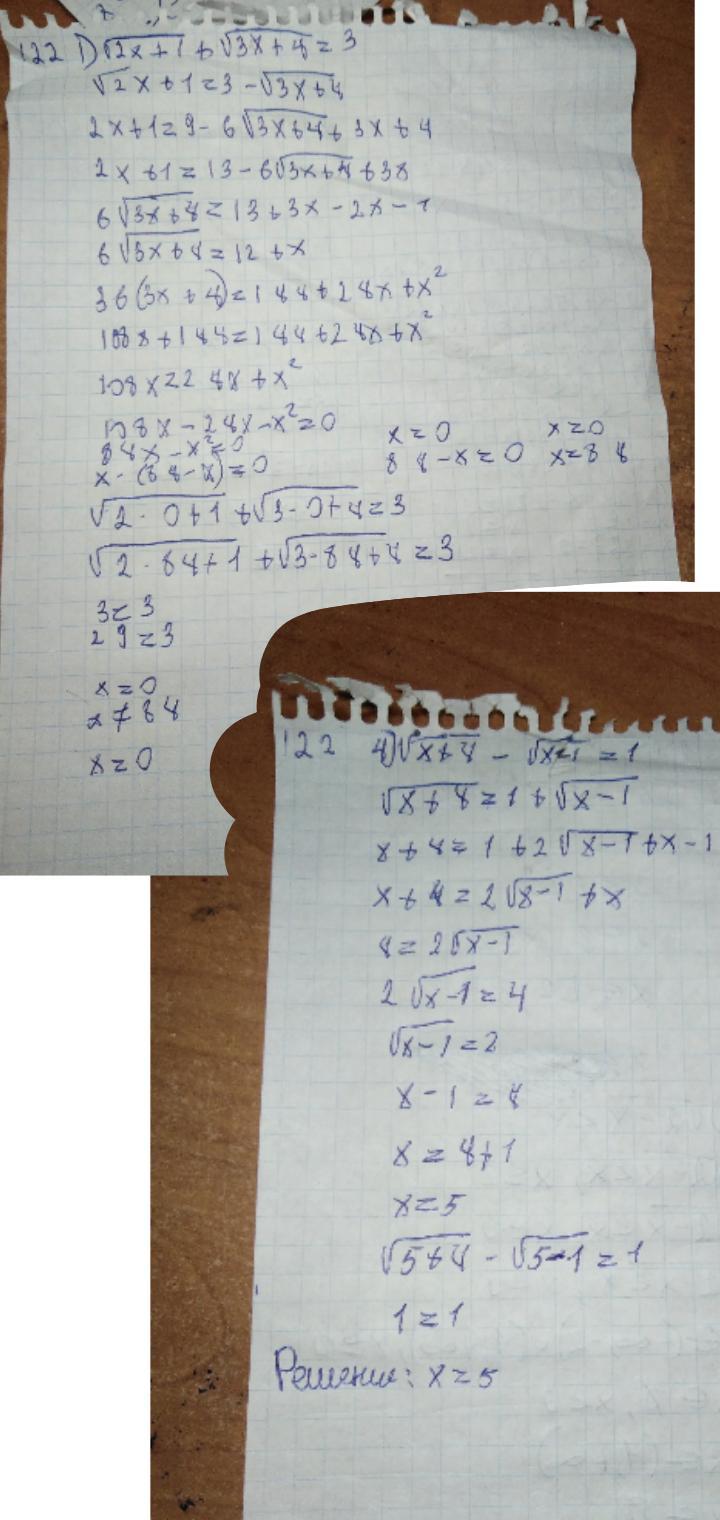 122 1) √2x+1 + √3x+4 = 3
√2x+1=3-√3x+4
2x+1=9-6√3x+4+3x+4
2x+1=13-6√3x+4+3x
6√3x+4=13+3x-2x-1
6√3x+4=12+x
36(3x+4)=144+24x+x²
108x+144=144+24x+x²
108x=24x+x²
108x-24x-x²=0
84x-x²=0
x-(84-x)=0
x=0 x=0
84-x=0 x=84
√2·0+1+√3·0+4=3
√2·84+1+√3·84+4=3
3=3
29=3
x=0
x≠84
x=0
122 4) √x+4 - √x-1 = 1
√x+4=1+√x-1
x+4=1+2√x-1+x-1
x+4=2√x-1+x
4=2√x-1
2√x-1=4
√x-1=2
x-1=4
x=4+1
x=5
√5+4-√5-1=1
1=1
Решение: x=5